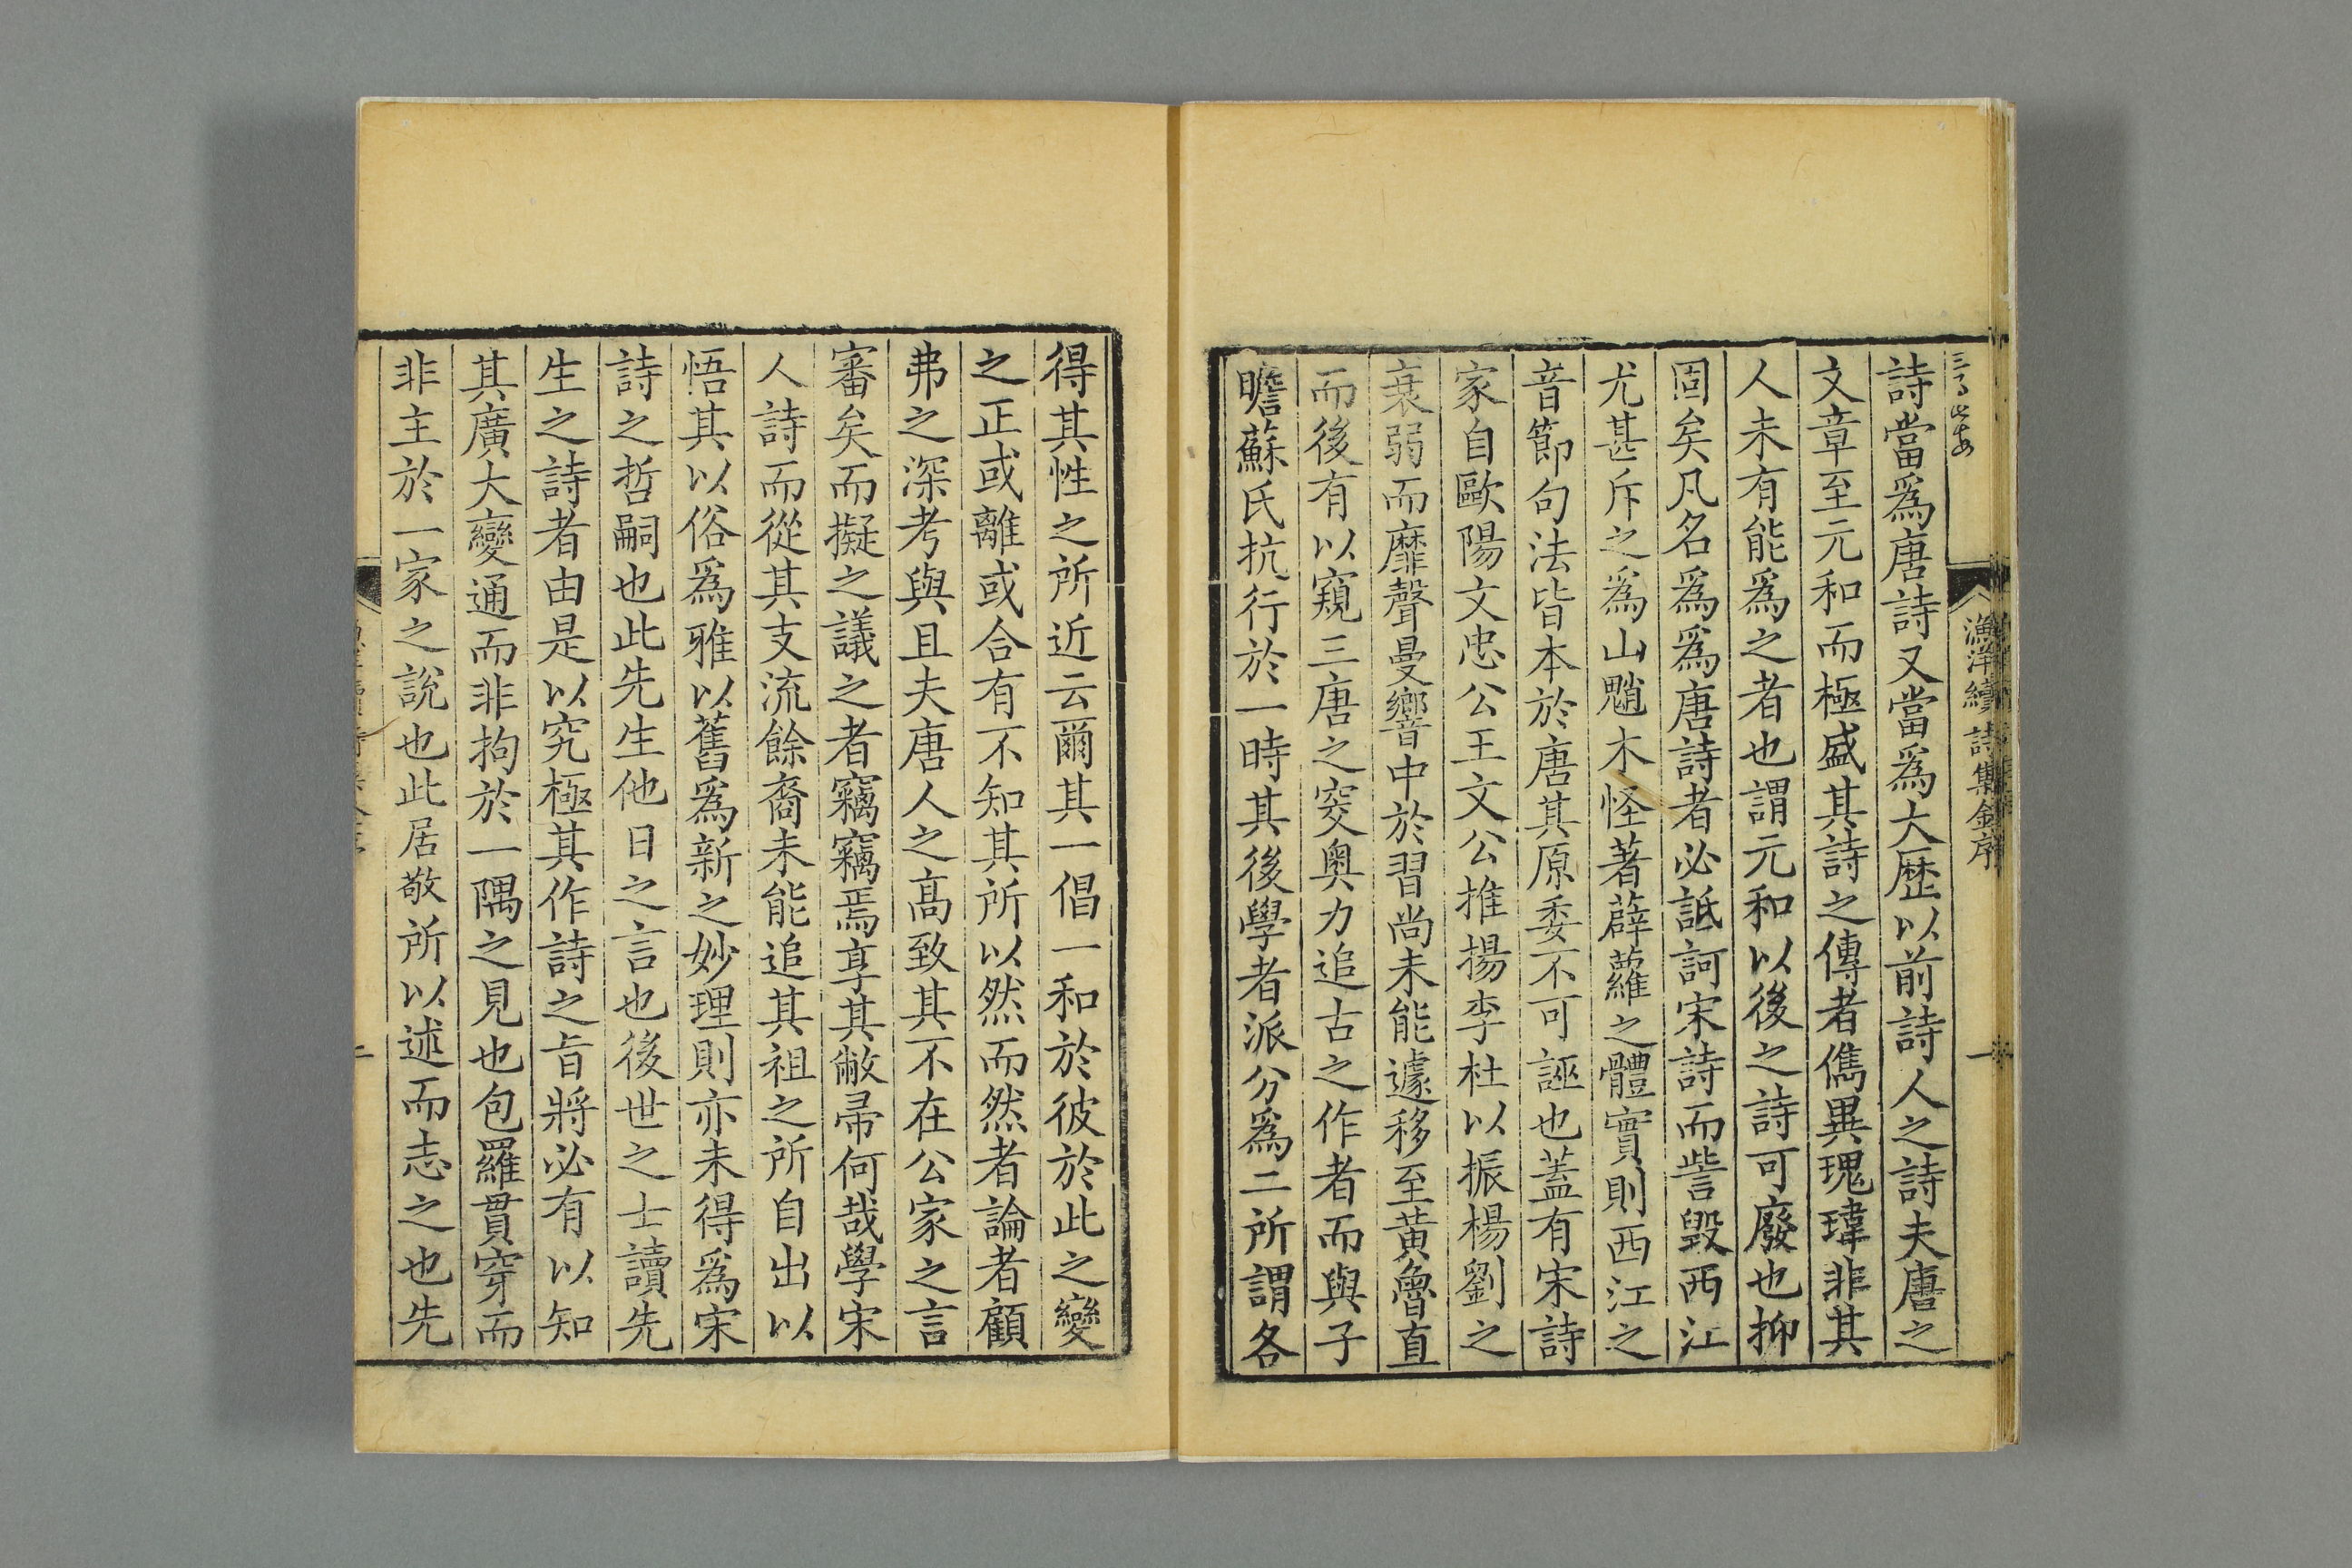 漁洋續詩集金序
一
詩當爲唐詩又當爲大歷以前詩人之詩夫唐之
文章至元和而極盛其詩之傳者儁異瑰瑋非其
人未有能爲之者也謂元和以後之詩可廢也抑
固矣凡名爲爲唐詩者必詆訶宋詩而訾毀西江
尤甚斥之爲山魈木怪著薜蘿之體實則西江之
音節句法皆本於唐其原委不可誣也蓋有宋詩
家自歐陽文忠公王文公推揚李杜以振楊劉之
衰弱而靡聲曼響中於習尚未能遽移至黃魯直
而後有以窺三唐之窔奧力追古之作者而與子
瞻蘇氏抗行於一時其後學者派分爲二所謂各
得其性之所近云爾其一倡一和於彼於此之變
之正或離或合有不知其所以然而然者論者顧
弗之深考與且夫唐人之高致其不在公家之言
審矣而擬之議之者竊竊焉享其敝帚何哉學宋
人詩而從其支流餘裔未能追其祖之所自出以
悟其以俗爲雅以舊爲新之妙理則亦未得爲宋
詩之哲嗣也此先生他日之言也後世之士讀先
生之詩者由是以究極其作詩之旨將必有以知
其廣大變通而非拘於一隅之見也包羅貫穿而
非主於一家之說也此居敬所以述而志之也先